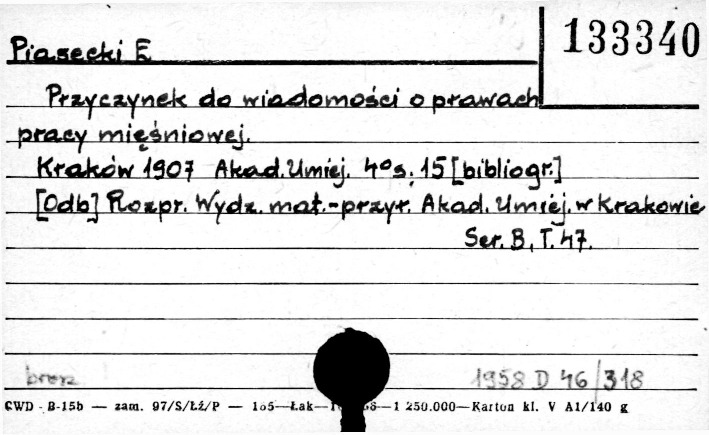 Piasecki E
133340
Przyczynek do wiadomości o prawach
pracy mięśniowej.
Kraków 1907 Akad. Umiej. 4° s. 15 [bibliogr.]
[Odb] Rozpr. Wydz. mat.-przyr. Akad. Umiej. w Krakowie
Ser. B, T. 47.
brosz
1958 D 46/318
CWD - B-15b — zam. 97/S/Łź/P — Łak— —1 250.000—Karton kl. V A1/140 g